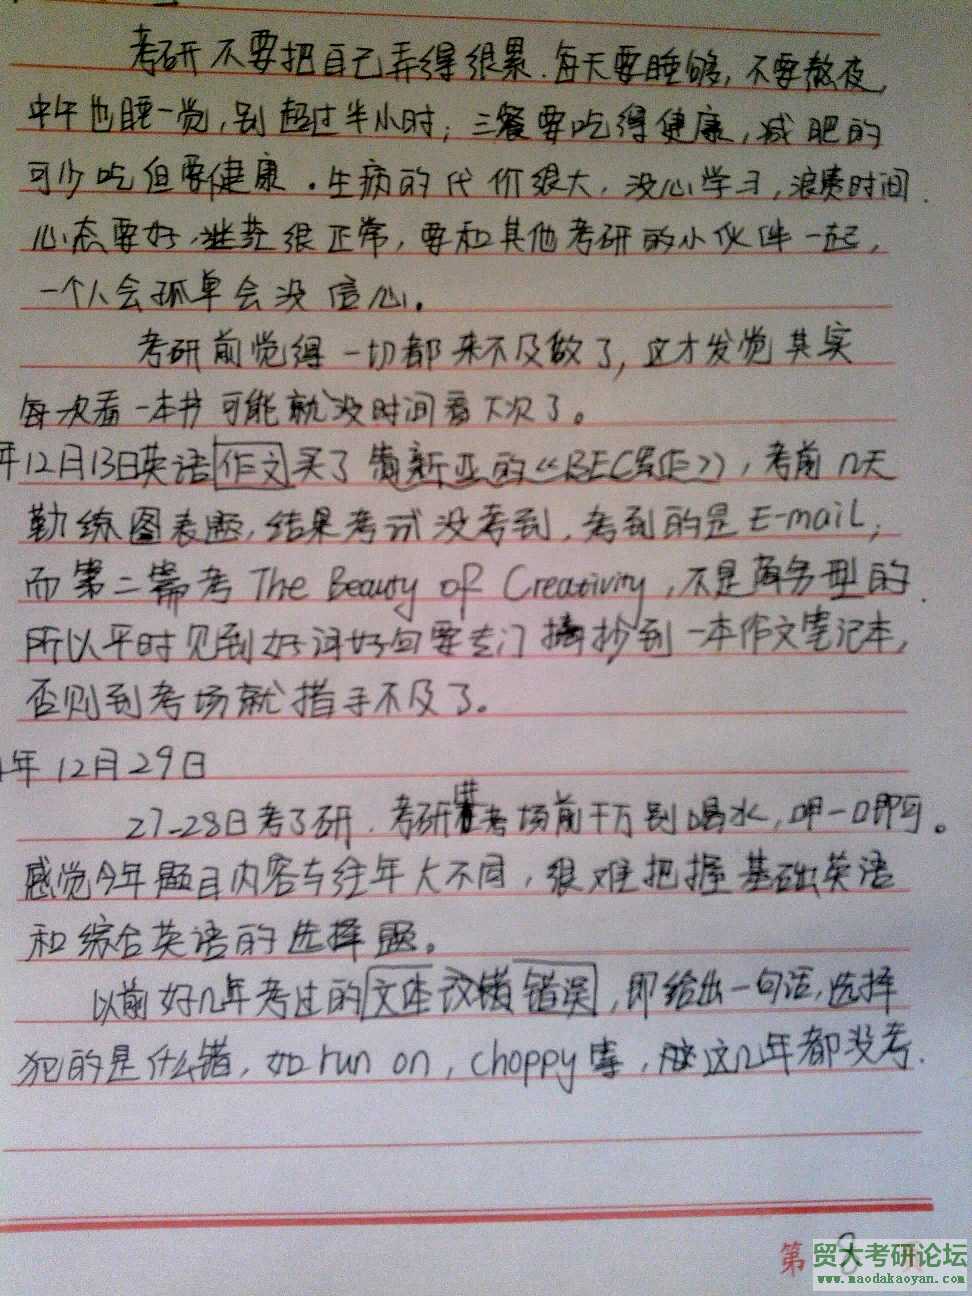 考研不要把自己弄得很累.每天要睡够,不要熬夜,
中午也睡一觉,别超过半小时;三餐要吃得健康,减肥的
可少吃但要健康.生病的代价很大,没心学习,浪费时间.
心态要好,迷茫很正常,要和其他考研的小伙伴一起,
一个人会孤单会没信心。
考研前觉得一切都来不及做了,这才发觉其实
每次看一本书可能就没时间看下次了。
年12月13日英语作文买了 新亚的《BEC写作》,考前几天
勤练图表题,结果考试没考到,考到的是E-mail,
而第二篇考The Beauty of Creativity,不是商务型的.
所以平时见到好词好句要专门摘抄到一本作文笔记本,
否则到考场就措手不及了。
年12月29日
27-28日考了研.考研进考场前千万别喝水,呷一口即可。
感觉今年题目内容与往年大不同,很难把握基础英语
和综合英语的选择题。
以前好几年考过的文体改错错误,即给出一句话,选择
犯的是什么错,如run on,choppy等,这几年都没考.
第8页
贸大考研论坛
www.maodakaoyan.com